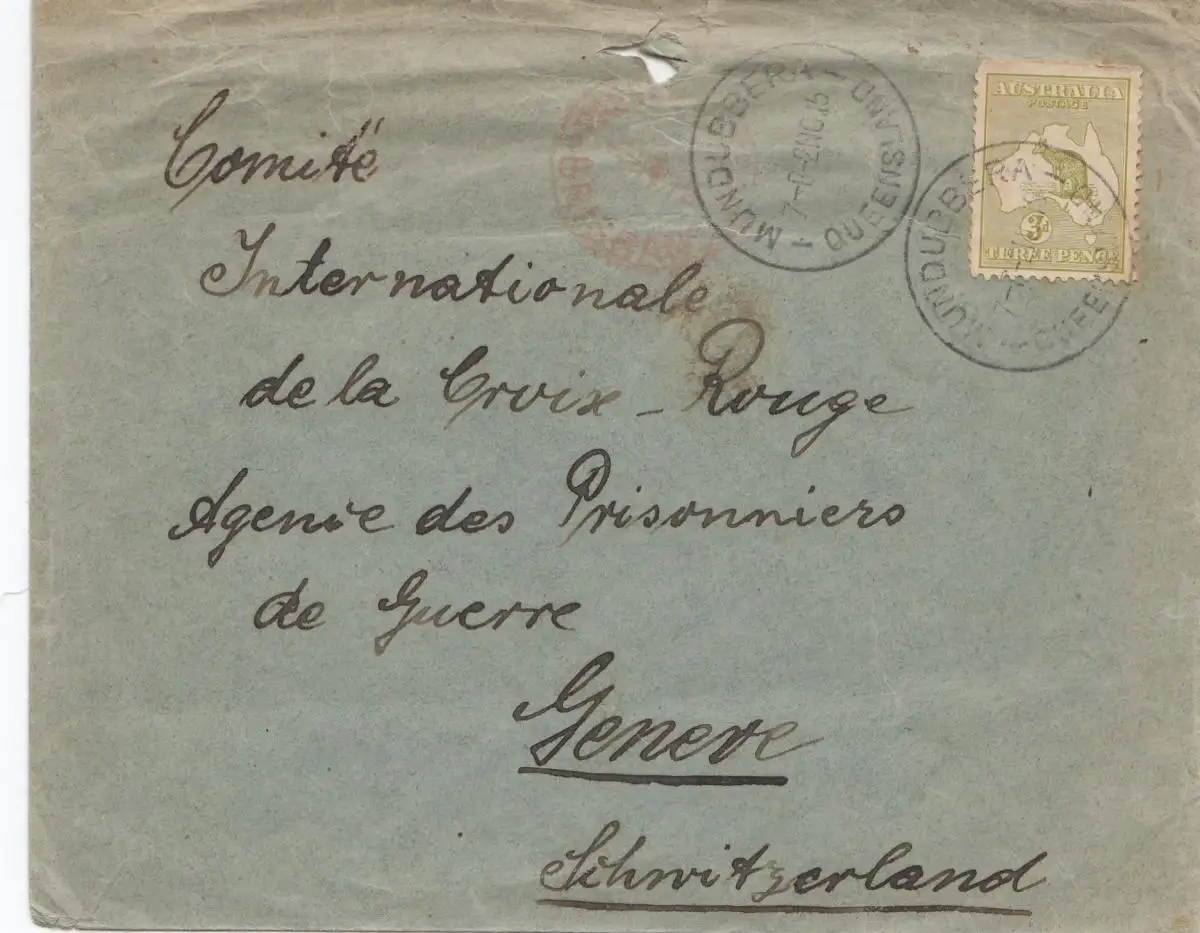 MUNDUBBERA - QUEENSLAND
AUSTRALIA
POSTAGE
3d
THREE PENCE
MUNDUBBERA
Comitë
Internationale
de la Croix - Rouge
Agencie des Prisonniers
de Guerre
Geneve
Schwitzerland